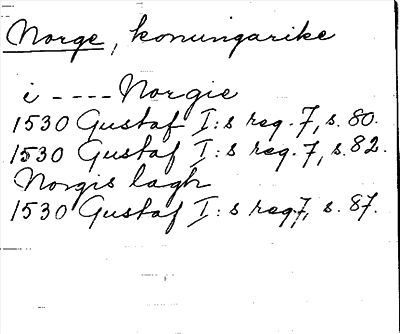 Norge, konungarike
i ---- Norgie
1530 Gustaf I:s reg. 7, s. 80.
1530 Gustaf I:s reg. 7, s. 82.
Norgis lagh
1530 Gustaf I:s reg 7, s. 87.